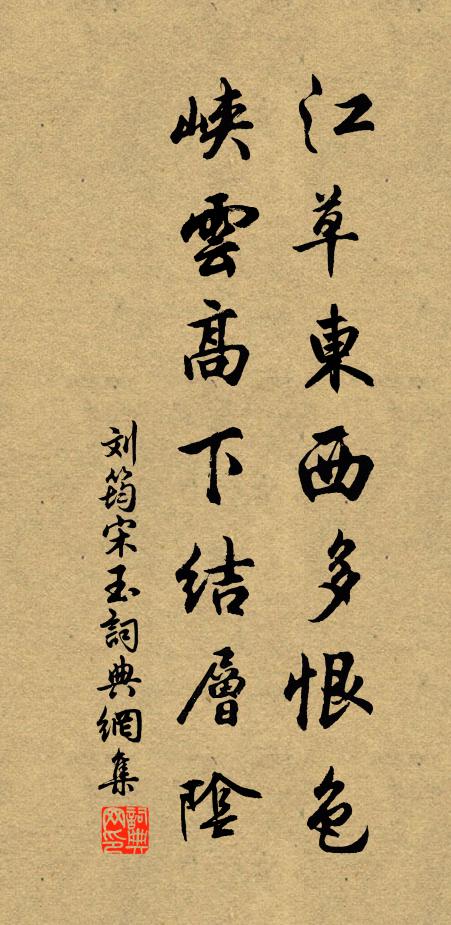 江草東西多恨色
峽雲高下结層陰
刘筠宋玉詞典網集
詞典网印